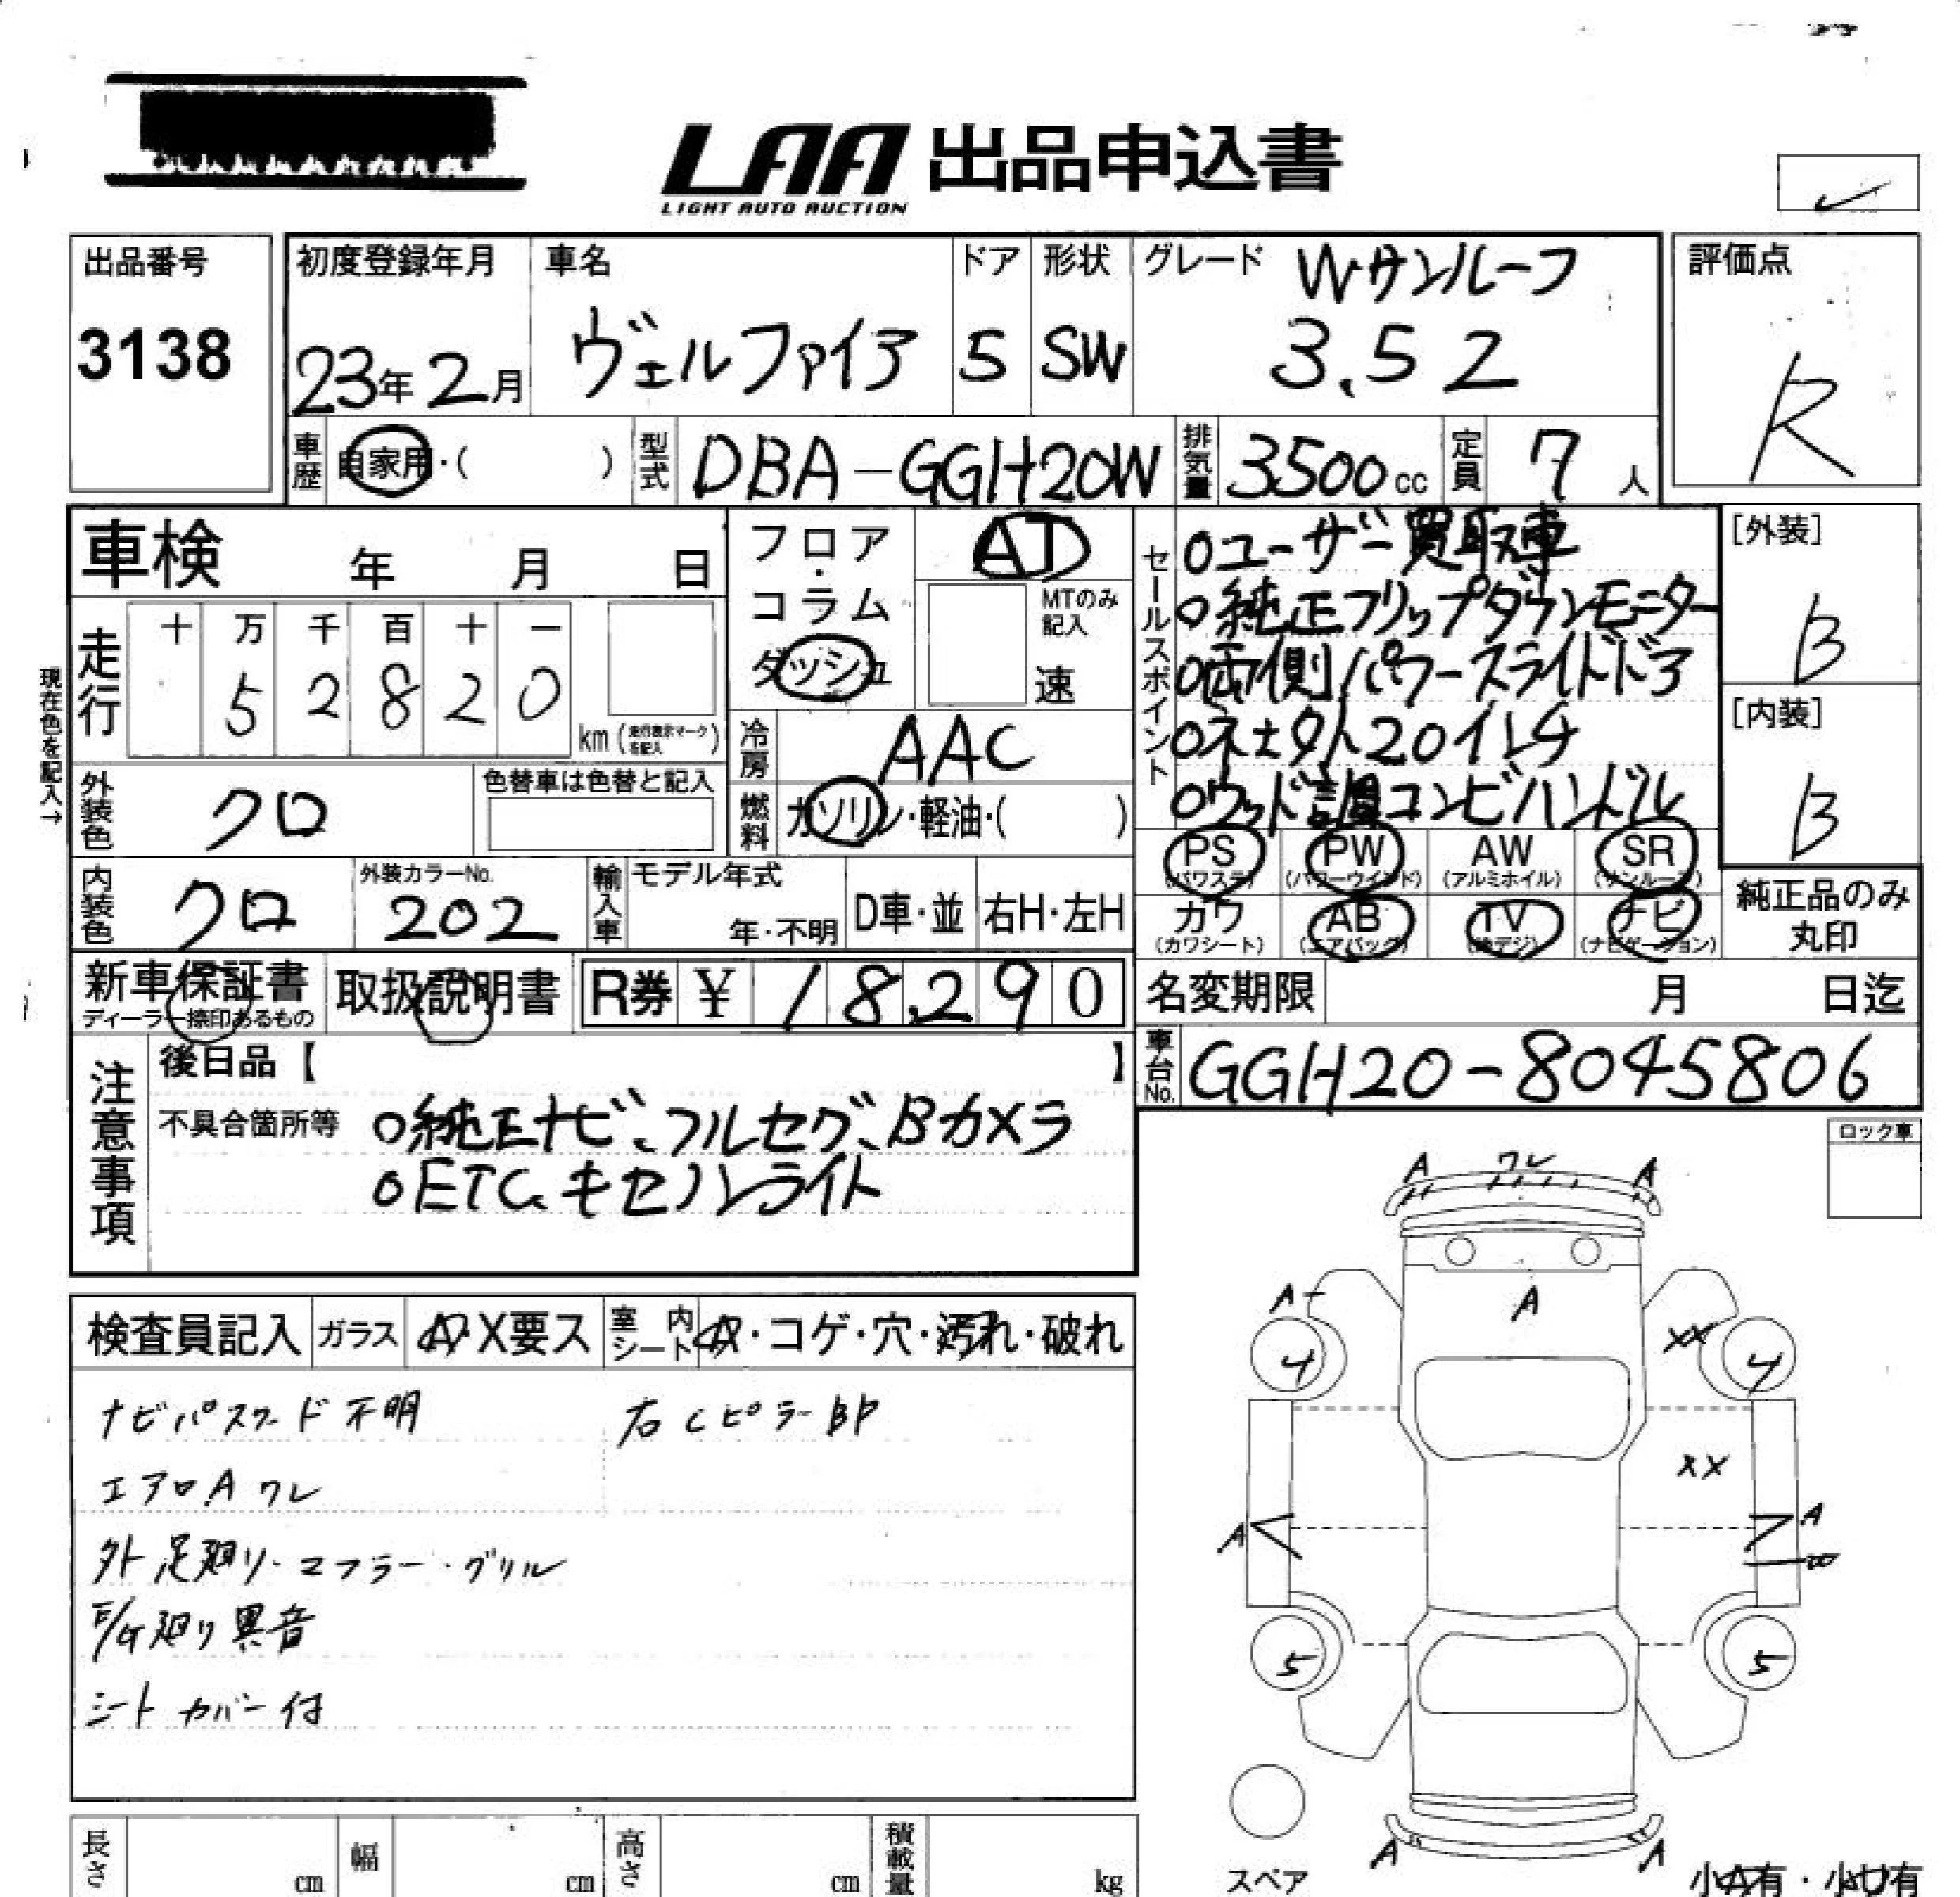 LAA 出品申込書
LIGHT AUTO AUCTION
出品番号
3138
初度登録年月
23年2月
車名
ヴェルファイア
ドア
5
形状
SW
グレード Wサンルーフ
3.5 Z
評価点
R
車歴 自家用・( )
型式 DBA-GGH20W
排気量 3500cc
定員 7人
車検 年 月 日
フロア・コラム ダッシュ
AT
MTのみ記入
速
走行
十 万 千 百 十 一
5 2 8 2 0
km (走行表示マークを記入)
現在色を記入→
冷房 AAC
燃料 ガソリン・軽油・( )
外装色 クロ
色替車は色替と記入
内装色 クロ
外装カラーNo.
202
輸入車
モデル年式
年・不明
D車・並
右H・左H
セールスポイント
○ユーザー買取車
○純正フリップダウンモニター
○両側パワースライドドア
○ネオタイト20インチ
○ウッド調コンビハンドル
[外装]
B
[内装]
B
PS (パワステ)
PW (パワーウインド)
AW (アルミホイル)
SR (サンルーフ)
カワ (カワシート)
AB (エアバッグ)
TV (地デジ)
ナビ (ナビゲーション)
純正品のみ
丸印
新車保証書
ディーラー捺印あるもの
取扱説明書
R券 ¥ 18,290
名変期限 月 日迄
車台No. GGH20-8045806
注意事項
後日品【 】
不具合箇所等 ○純正ナビ、フルセグ、Bカメラ
○ETC、キセノンライト
ロック車
検査員記入
ガラス A・X要ス
室内シート A・コゲ・穴・汚れ・破れ
ナビパスワード不明 右Cピラー BP
エアロ.A ワレ
外 足廻り・マフラー・グリル
E/G廻り異音
シートカバー付
A ワレ A
A
A
XX
4 4
XX
A A
5 5
A A
スペア
小A有・小U有
長さ cm
幅 cm
高さ cm
積載量 kg